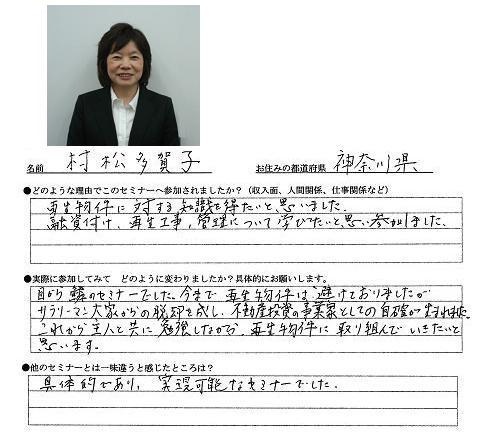 名前 村松多賀子 お住みの都道府県 神奈川県
●どのような理由でこのセミナーへ参加されましたか？（収入面、人間関係、仕事関係など）
再生物件に対する知識を得たいと思いました。
融資付け、再生工事、管理について学びたいと思い参加しました。
●実際に参加してみて どのように変わりましたか？具体的にお願いします。
目から鱗のセミナーでした。今まで再生物件は避けておりましたが
サラリーマン大家からの脱却を成し、不動産投資の事業家としての自覚が生まれました。
これから主人と共に勉強しながら、再生物件に取り組んでいきたいと
思います。
●他のセミナーとは一味違うと感じたところは？
具体的であり、実現可能なセミナーでした。